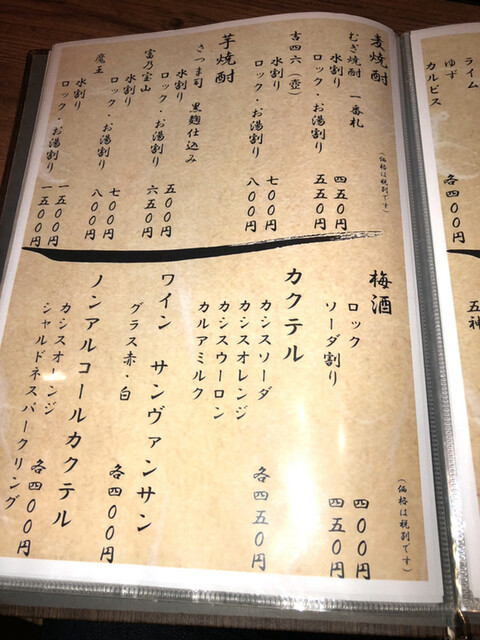 ライム
ゆず
カルピス
各四〇〇円
五神
麦焼酎
(価格は税別です)
むぎ焼酎 一番札
水割り 四五〇円
ロック・お湯割り 五五〇円
吉四六 (壺)
水割り 七〇〇円
ロック・お湯割り 八〇〇円
芋焼酎
さつま司 黒麹仕込み
水割り 五〇〇円
ロック・お湯割り 六五〇円
富乃宝山
水割り 七〇〇円
ロック・お湯割り 八〇〇円
魔王
水割り 一五〇〇円
ロック・お湯割り 一五〇〇円
梅酒
(価格は税別です)
ロック 四〇〇円
ソーダ割り 四五〇円
カクテル
カシスソーダ
カシスオレンジ
カシスウーロン
カルアミルク
各四五〇円
ワイン サンヴァンサン
グラス赤・白 各四〇〇円
ノンアルコールカクテル
カシスオレンジ
シャルドネスパークリング
各四〇〇円